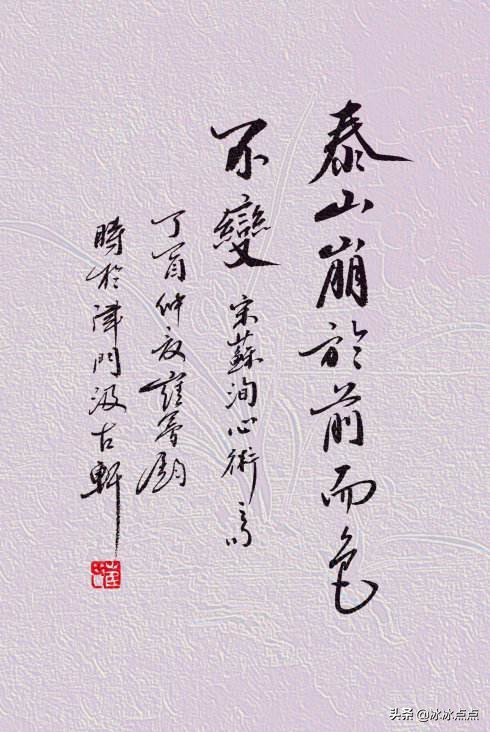 泰山崩於前而色
不變 宋蘇洵心術
丁酉仲夏
時於津門汲古軒
头条 @冰冰点点